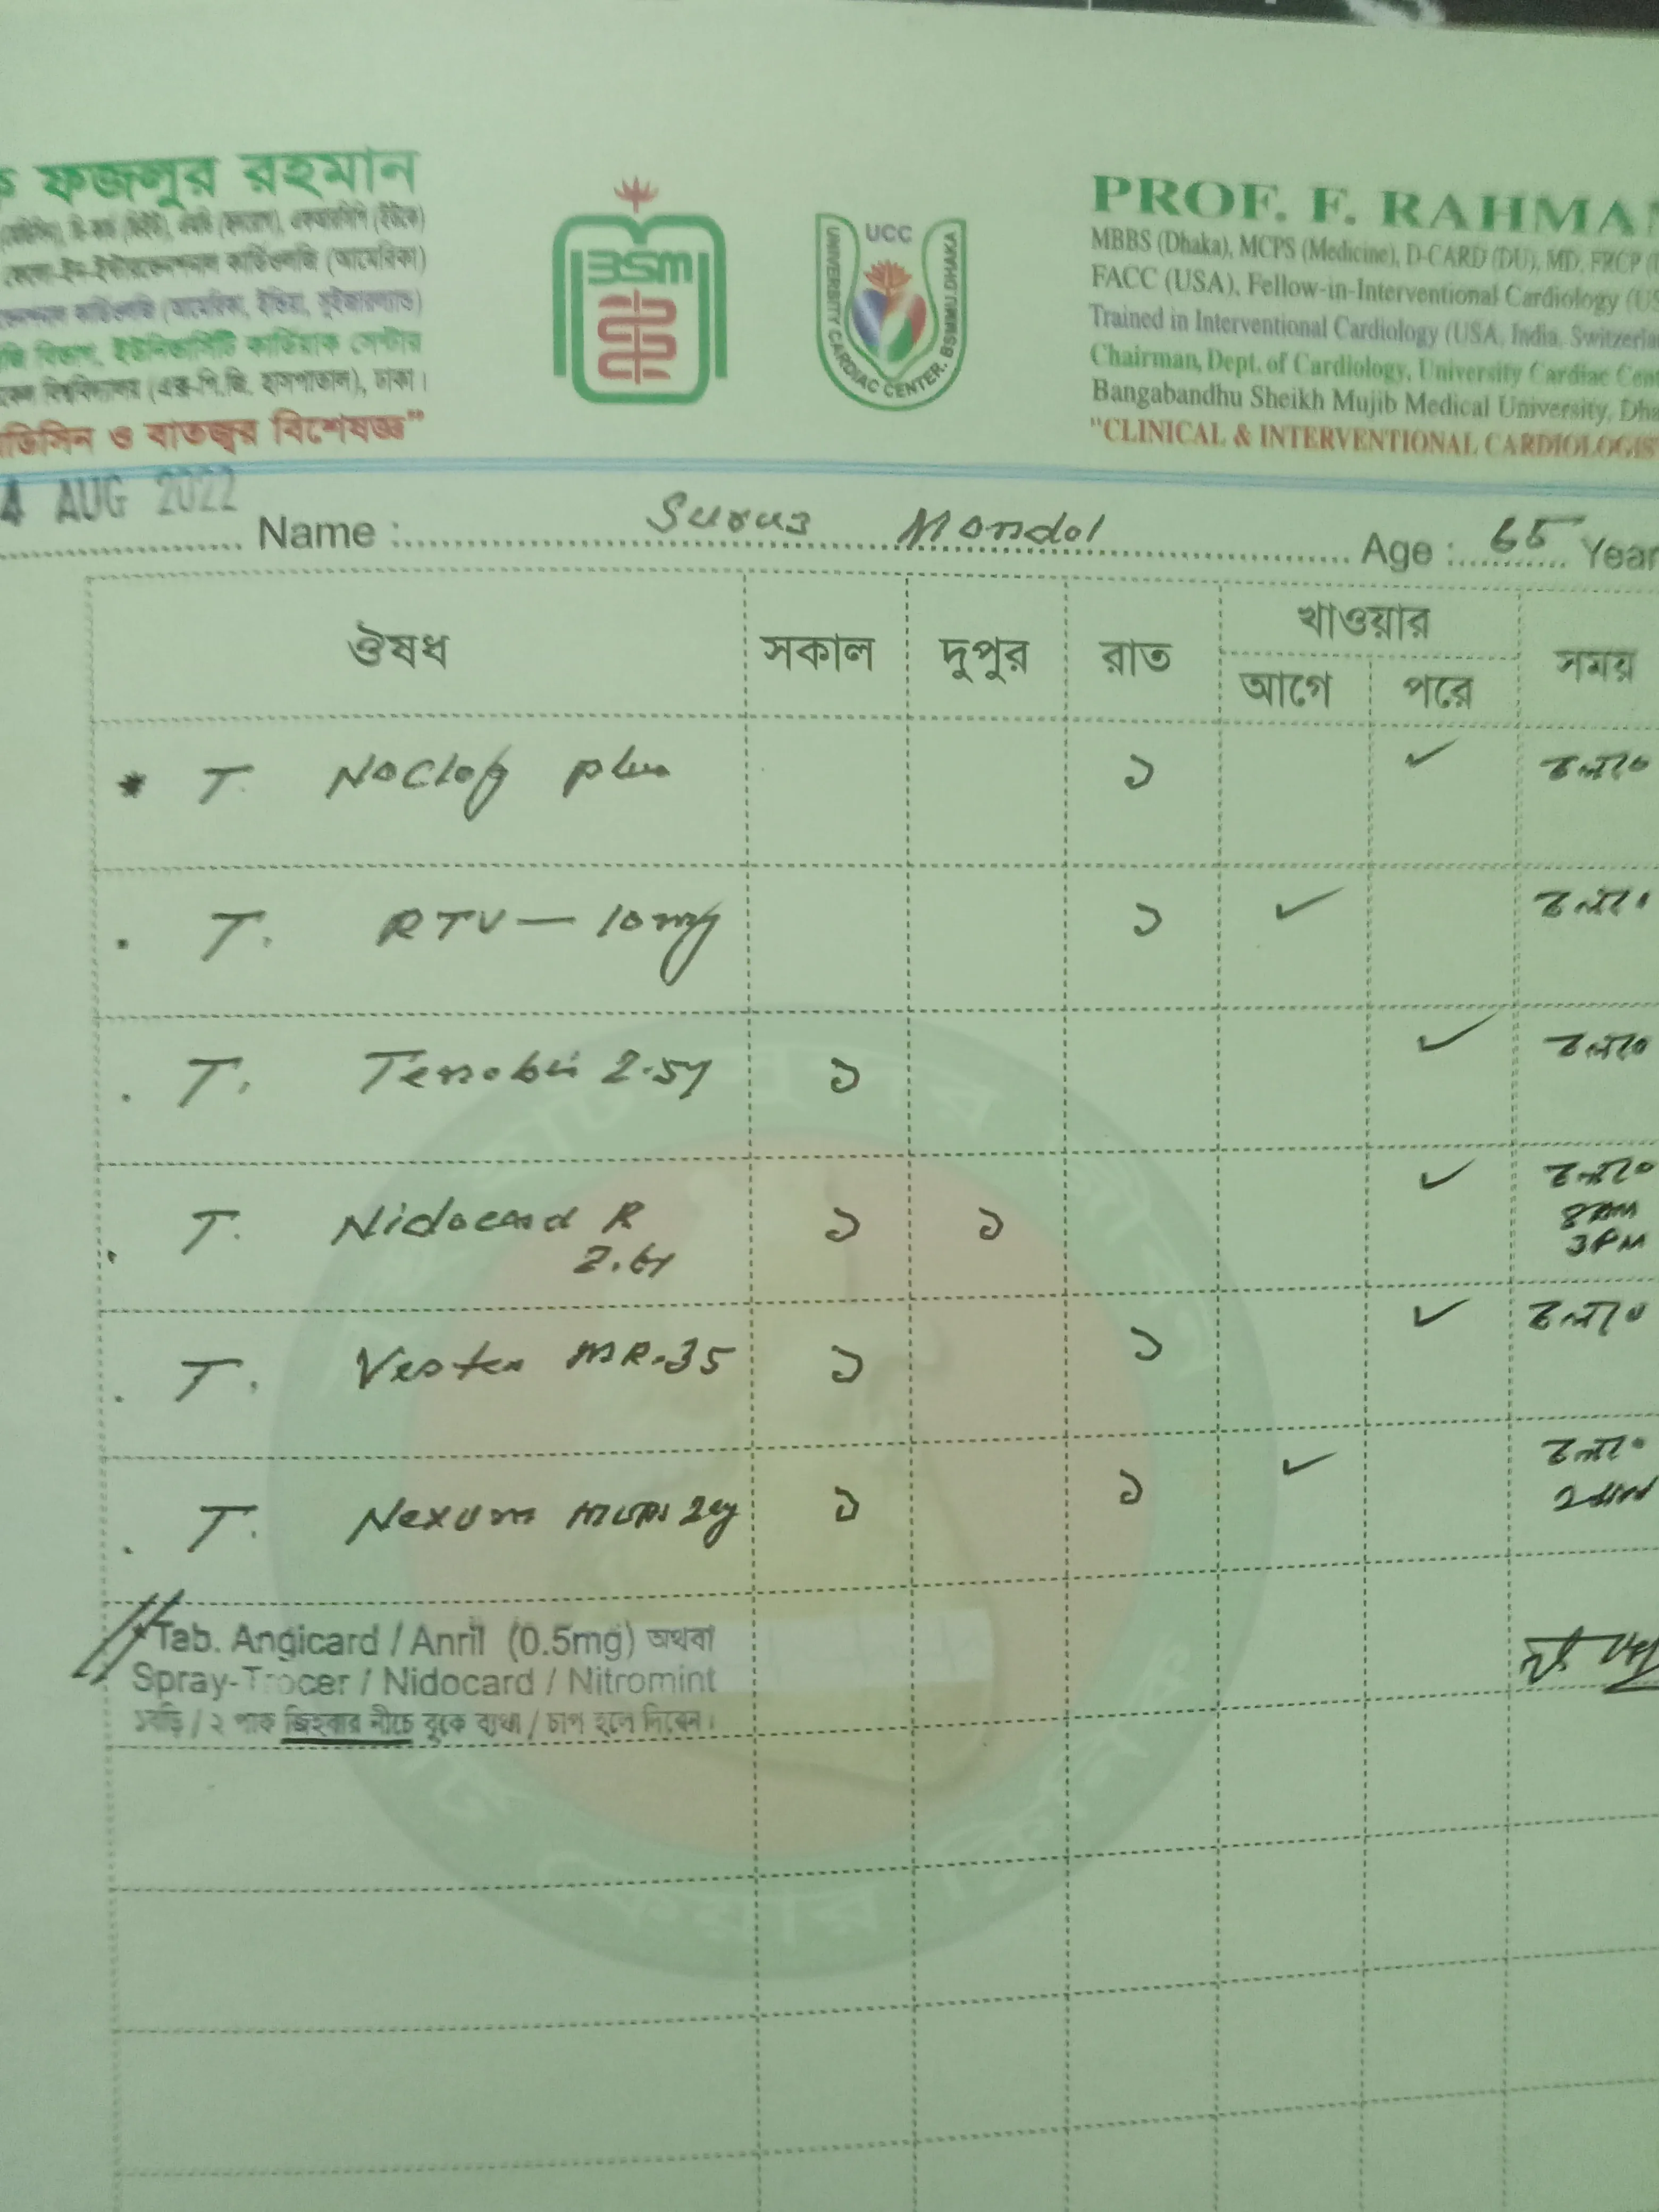 ফজলুর রহমান
কার্ডিওলজি (আমেরিকা)
কার্ডিওলজি (আমেরিকা, ইন্ডিয়া, সুইজারল্যান্ড)
বিভাগ, ইউনিভার্সিটি কার্ডিয়াক সেন্টার
বিশ্ববিদ্যালয় (এক্স-পি.জি. হাসপাতাল), ঢাকা।
ও বাতজ্বর বিশেষজ্ঞ”
BSM
UCC
UNIVERSITY CARDIAC CENTER. BSMMU. DHAKA
PROF. F. RAHMA
MBBS (Dhaka), MCPS (Medicine), D-CARD (DU), MD, FRCP
FACC (USA), Fellow-in-Interventional Cardiology
Trained in Interventional Cardiology (USA, India,
Chairman, Dept. of Cardiology, University Cardiac
Bangabandhu Sheikh Mujib Medical University,
"CLINICAL & INTERVENTIONAL CARDIOLOGIS
4 AUG 2022
Name : Mondol Age : 65 Year
ঔষধ সকাল দুপুর রাত খাওয়ার সময়
আগে পরে
* T. Noclog plus ১ ✓ চলবে
T. RTV — 10mg ১ ✓ চলবে
T. 2.5 ১ ✓ চলবে
T. Nidocard R ১ ১ ✓ চলবে
2.6 8AM
3PM
T. MR-35 ১ ১ ✓ চলবে
T. Nexum MUPS ১ ১ ✓ চলবে
*Tab. Angicard / Anril (0.5mg) অথবা
Spray-Trocer / Nidocard / Nitromint
১বড়ি / ২ পাফ জিহবার নীচে বুকে ব্যথা / চাপ হলে দিবেন।